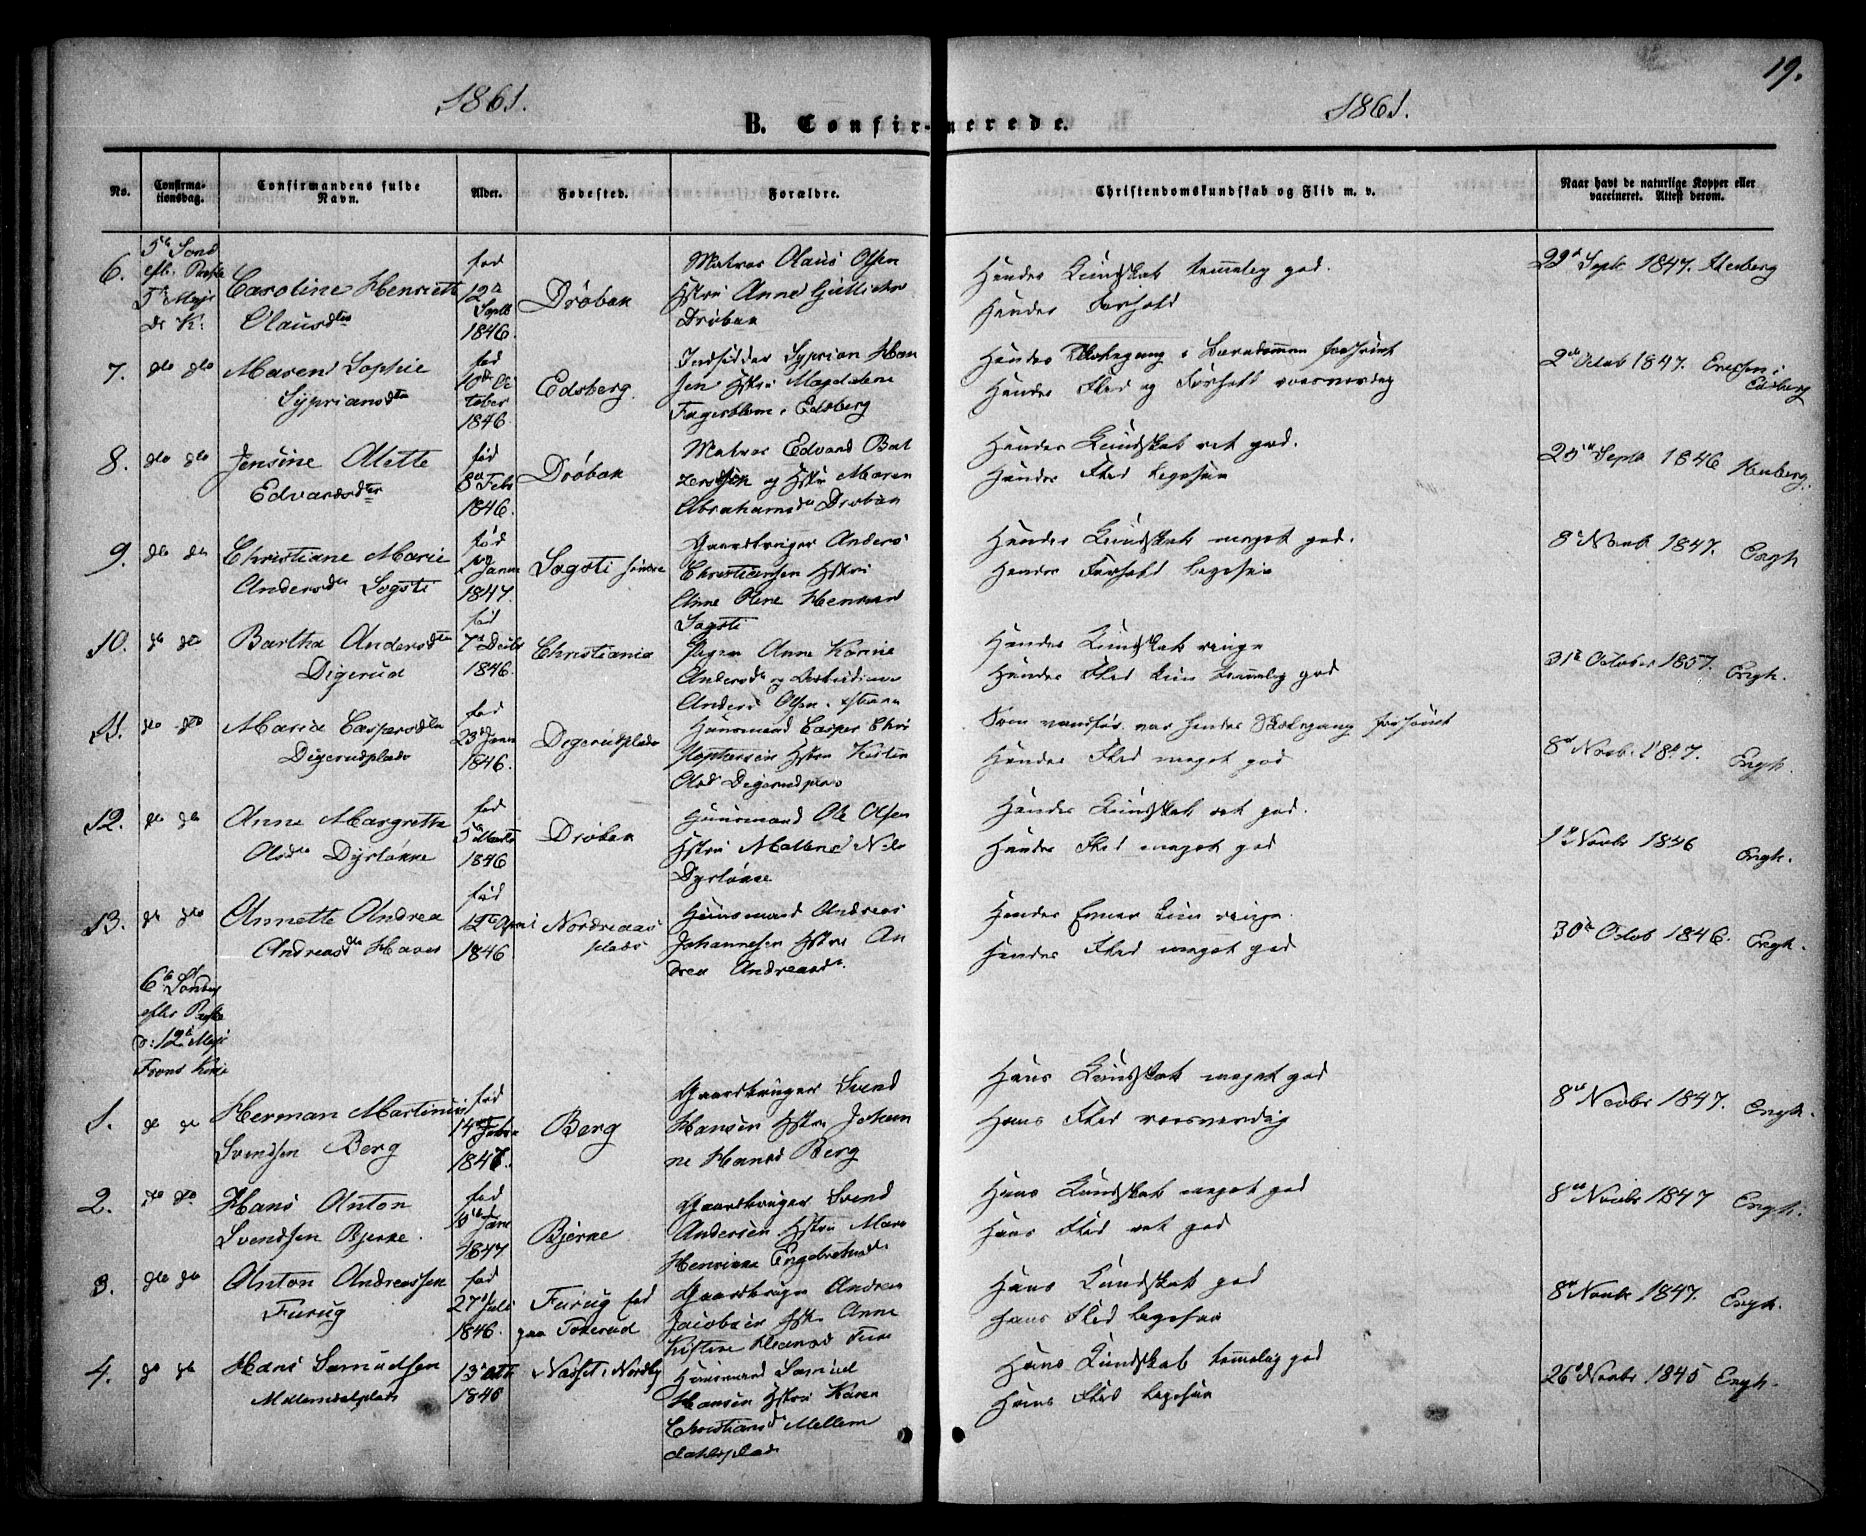 1861.
1861.
19.
B. Confir-
merede.
No.
Confirma-
tionsdag.
Confirmandens fulde
Navn.
Alder.
Fødested.
Forældre.
Christendomskundskab og Flid m. v.
Naar havt de naturlige Kopper eller
vaccineret. Attest derom.
6.
Caroline Henriette
Clausdtr
fød
12te
Septb
1846.
Drøbak
Matros Olaus Olsen
Hstru Anne
Drøbak
Hendes Kundskab temmelig god.
Hendes Forhold
29de Septb 1847.
7. dto dto
Maren Sophie
Sypriansdtr
fød
10de Oc
tober
1846
Edsberg.
Inds idder Syprian Han
sen Hstru Magdalene
Fagerblom i Edsberg
Hendes Skolegang i Barndommen forsømt
Hendes Flid og Forhold roesværdig
2den Octob 1847.
Edsberg
8. dto dto
Jensine Alette
Edvardsdtr
fød
8de Febr
1846.
Drøbak
Matros Edvard Bal
zersen og Hstru Maren
Abrahamsdr Drøbak
Hendes Kundskab ret god.
Hendes Flid ligesaa
Septb 1846
9. do do
Christiane Marie
Andersdtr Sogsti
fød
Janua
1847.
Sogsti søndre
Gaardbruger Anders
Christiansen Hstru
Anne Oline
Sogsti
Hendes Kundskab meget god.
Hendes Forhold ligesaa
8de Novb 1847. Engh
10. do dto
Bartha Andersdtr
Digerud
fød
7de Decbr
1846.
Christiania
Pigen Anne Karine
Andersdr og
Anders Olsen
Hendes Kundskab ringe
Hendes Flid kun temmelig god
31te October 1857. Engh.
11. dto dto
Maria Caspersdtr
Digerudplads
fød
23de Janu
1846.
Digerudplads
Huusmand Casper Chri
stophersen Hstru Kirsten
Olsd Digerudplads
Som vanfør var hendes Skolegang forsømt
Hendes Flid meget god
8de Novb. 1847. Engh.
12. do do
Anne Margrethe
Olsdtr Dyrløkke
fød
5te Marts
1846
Drøbak
Huusmand Ole Olsen
Hstru Mallene Nils
Dyrløkke
Hendes Kundskab ret god.
Hendes Flid meget god
1ste Novbr 1846 Engh.
13. do dto
Annette Andrea
Andreasdtr Haver
fød
12te April
1846
Nordreaas
plads
Huusmand Andreas
Johannesen Hstru An
drea Andreasdr.
Hendes Evner kun ringe.
Hendes Flid meget god
30te Octob 1846. Engh.
6te Søndag
efter Paaske
d: 12te Maji
Frons Kirke
1. do do
Herman Martinius
Svendsen Berg
fød
14de Febru
1847.
Berg
Gaardbruger Svend
Hansen Hstru Johan
ne Hansd Berg
Hans Kundskab meget god
Hans Flid roesværdig
8de Novbr 1847. Engh.
2. do do
Hans Anton
Svendsen Bjerke.
fød
Janr
1847.
Bjerke
Gaardbruger Svend
Andersen Hstru Maren
Henrikke Engebretsdr
Hans Kundskab meget god
Hans Flid ret god
8de Novbr 1847 Engh.
3. dto do
Anton Andreassen
Furug
fød
27de Juli
1846.
Furug fød
paa Tokerud
Gaardbruger Andreas
Jacobsen Hstr Anne
Kistine
Hans Kundskab god
hans Flid ligesaa
8de Novbr 1847. Engh.
4. do do
Hans Samuelsen
Mellemdalplads
1846
Nasset i Nordby
Huusmand Samuel
Hansen Hstru Karen
Christiansdr Mellem
dahlsplads
Hans Kundskab temmelig god
Hans Flid ligesaa
26de Novbr 1846 Engh.